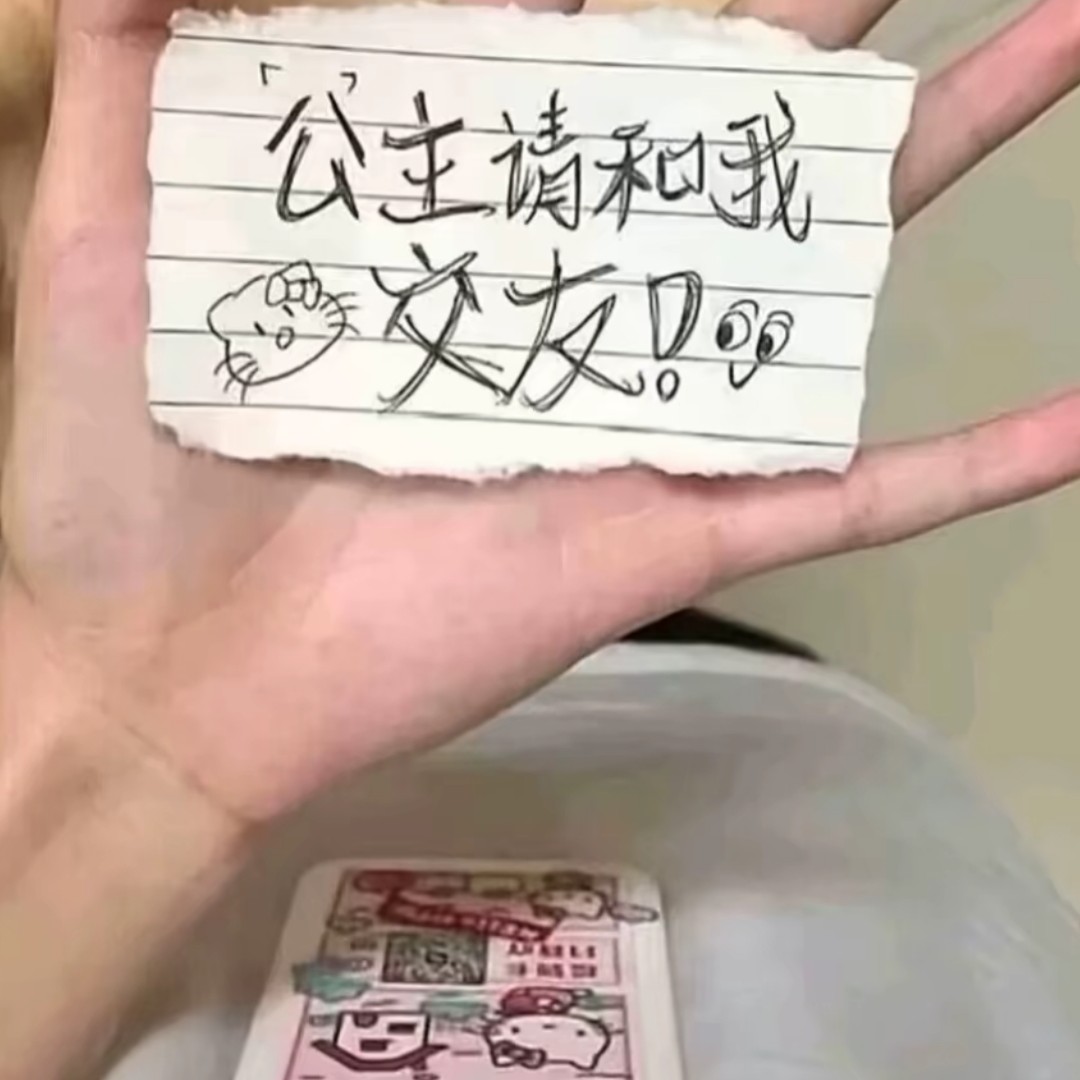 「公主」请和我
交友!